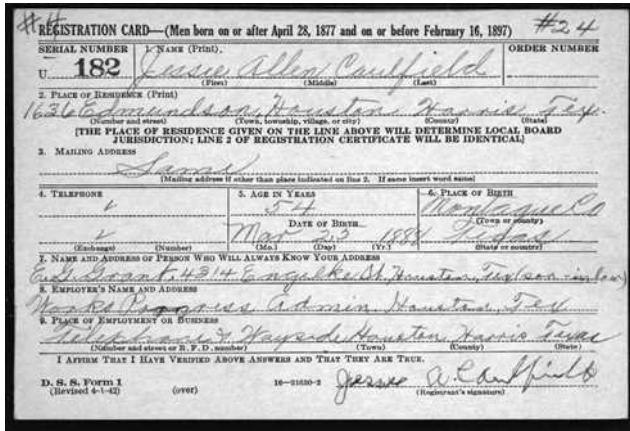 #4 REGISTRATION CARD—(Men born on or after April 28, 1877 and on or before February 16, 1897) #24
SERIAL NUMBER 1. NAME (Print) ORDER NUMBER
U 182 Jessie Allen Caulfield
(First) (Middle) (Last)
2. PLACE OF RESIDENCE (Print)
1636 Edmundson, Houston Harris Tex.
(Number and street) (Town, township, village, or city) (County) (State)
[THE PLACE OF RESIDENCE GIVEN ON THE LINE ABOVE WILL DETERMINE LOCAL BOARD
JURISDICTION; LINE 2 OF REGISTRATION CERTIFICATE WILL BE IDENTICAL]
3. MAILING ADDRESS
Same
(Mailing address if other than place indicated on line 2. If same insert word same)
4. TELEPHONE 5. AGE IN YEARS 6. PLACE OF BIRTH
54 Montague Co
DATE OF BIRTH (Town or county)
Mar 23 1888 Texas
(Exchange) (Number) (Mo.) (Day) (Yr.) (State or country)
7. NAME AND ADDRESS OF PERSON WHO WILL ALWAYS KNOW YOUR ADDRESS
E. G. Grant 4314 Engelke St. Houston, Tex (son-in-law)
8. EMPLOYER'S NAME AND ADDRESS
Works Progress Admin. Houston, Tex
9. PLACE OF EMPLOYMENT OR BUSINESS
Wayside Houston Harris Texas
(Number and street or R. F. D. number) (Town) (County) (State)
I AFFIRM THAT I HAVE VERIFIED ABOVE ANSWERS AND THAT THEY ARE TRUE.
D. S. S. Form 1
(Revised 4-1-42) (over) 16-21630-2 Jessie A. Caulfield
(Registrant's signature)